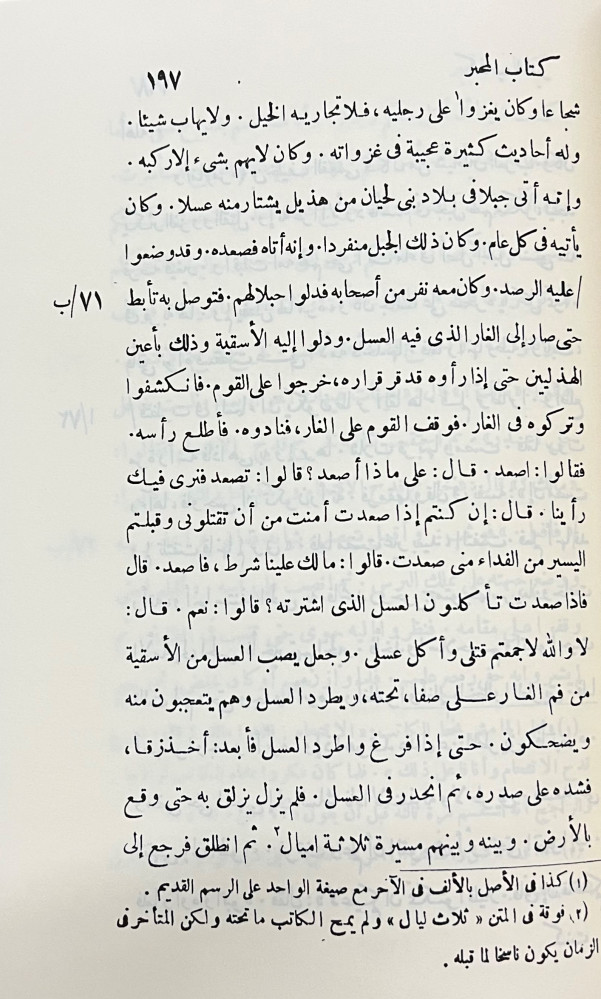 كتاب المحبر ١٩٧
شجاعا وكان يغزوا١ على رجليه، فلا تجاريه الخيل. ولا يهاب شيئا.
وله أحاديث كثيرة عجيبة فى غزواته. وكان لا يهم بشىء إلا ركبه.
وإنه أتى جبلا فى بلاد بنى لحيان من هذيل يشتار منه عسلا. وكان
يأتيه فى كل عام. وكان ذلك الجبل منفردا. وإنه أتاه فصعده. وقد وضعوا
/ عليه الرصد. وكان معه نفر من أصحابه فدلوا حبلا لهم. فتوصل به تأبط ٧١/ب
حتى صار إلى الغار الذى فيه العسل. ودلوا إليه الأسقية وذلك بأعين
الهذليين حتى إذا رأوه قد قر قراره، خرجوا على القوم. فانكشفوا
وتركوه فى الغار. فوقف القوم على الغار، فنادوه. فأطلع رأسه.
فقالوا: اصعد. قال: على ماذا أصعد؟ قالوا: تصعد فنرى فيك
رأينا. قال: إن كنتم إذا صعدت أمنت من أن تقتلونى وقبلتم
اليسير من الفداء منى صعدت. قالوا: مالك علينا شرط، فاصعد. قال
فاذا صعدت تأكلون العسل الذى اشترته؟ قالوا: نعم. قال:
لا والله لا جمعتم قتلى وأكل عسلى. وجعل يصب العسل من الأسقية
من فم الغار على صفا، تحته، ويطرد العسل وهم يتعجبون منه
ويضحكون. حتى إذا فرغ واطرد العسل فأبعد: أخذ زقا،
فشده على صدره، ثم انحدر فى العسل. فلم يزل يزلق به حتى وقع
بالأرض. وبينه وبينهم مسيرة ثلاثة اميال٢. ثم انطلق فرجع إلى
(١) كذا فى الأصل بالألف فى الآخر مع صيغة الواحد على الرسم القديم.
(٢) فوقة فى المتن «ثلاث ليال» ولم يمح الكاتب ما تحته ولكن المتأخر فى
الزمان يكون ناسخا لما قبله.